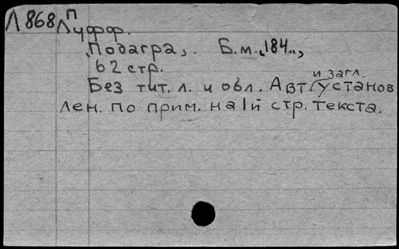 Л868 п
Луфф.
„Подагра". Б.м., 184..,
62 стр.
Без тит. л. и обл. Авт. и загл. установ
лен. по прим. на 1й стр. текста.